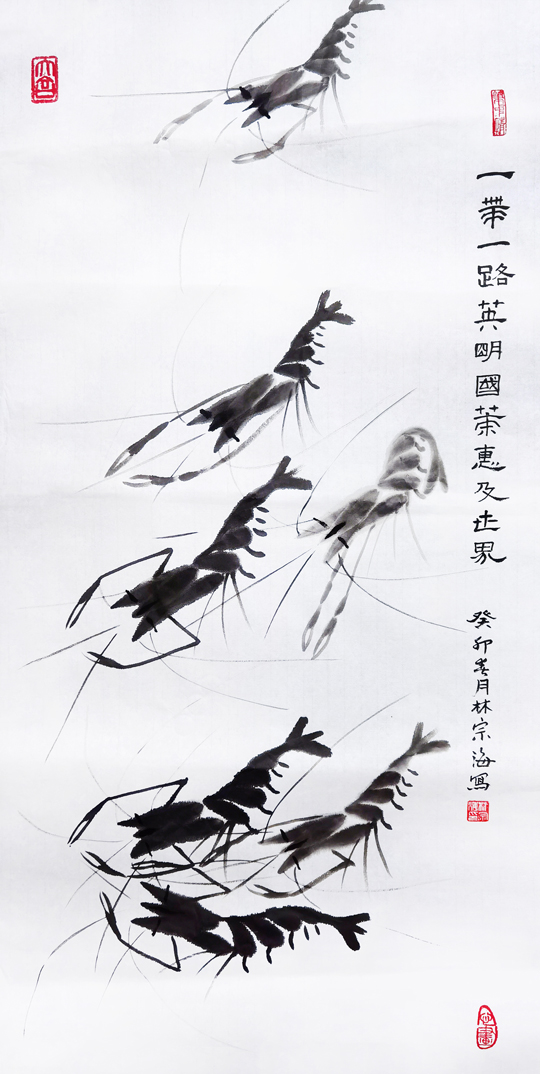 一帶一路英明國策惠及世界
癸卯春月林宗海寫